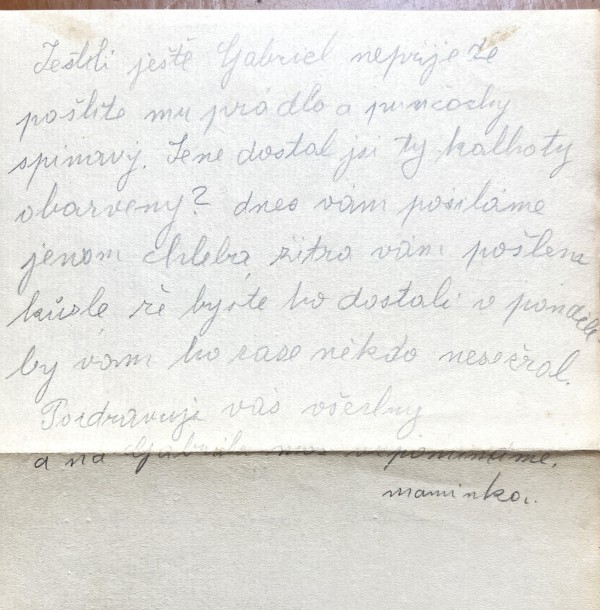 Jestli ještě Gabriel nepriježe
pošlite mu prádlo a punčochy
spinavy. Jene dostal jsi ty kalhoty
obarveny? dnes vám posíláme
jenom chleba, zitra vám pošleme
kůzle že byste ho dostali v pondělí
by vám ho zase někdo nesežral.
Pozdravuji vás všechny
a na Gabriela moc vzpomínáme.
maminka.